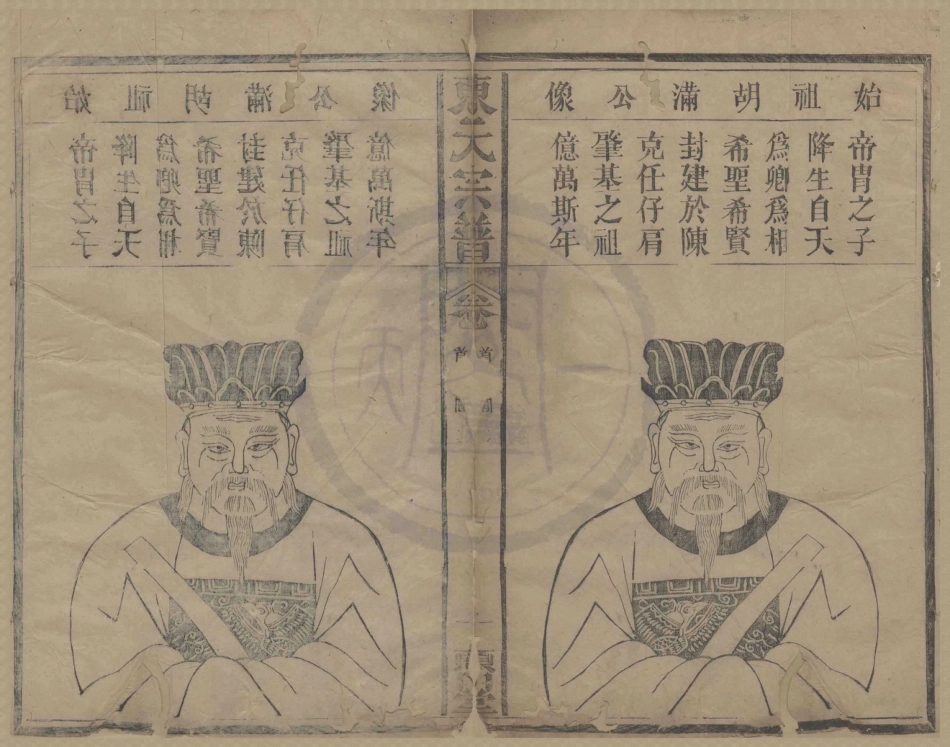 始祖胡滿公像
帝胄之子
降生自天
爲卿爲相
希聖希賢
封建於陳
克仕仔肩
肇基之祖
億萬斯年
宗譜
卷
首
始祖胡滿公像
帝胄之子
降生自天
爲卿爲相
希聖希賢
封建於陳
克仕仔肩
肇基之祖
億萬斯年